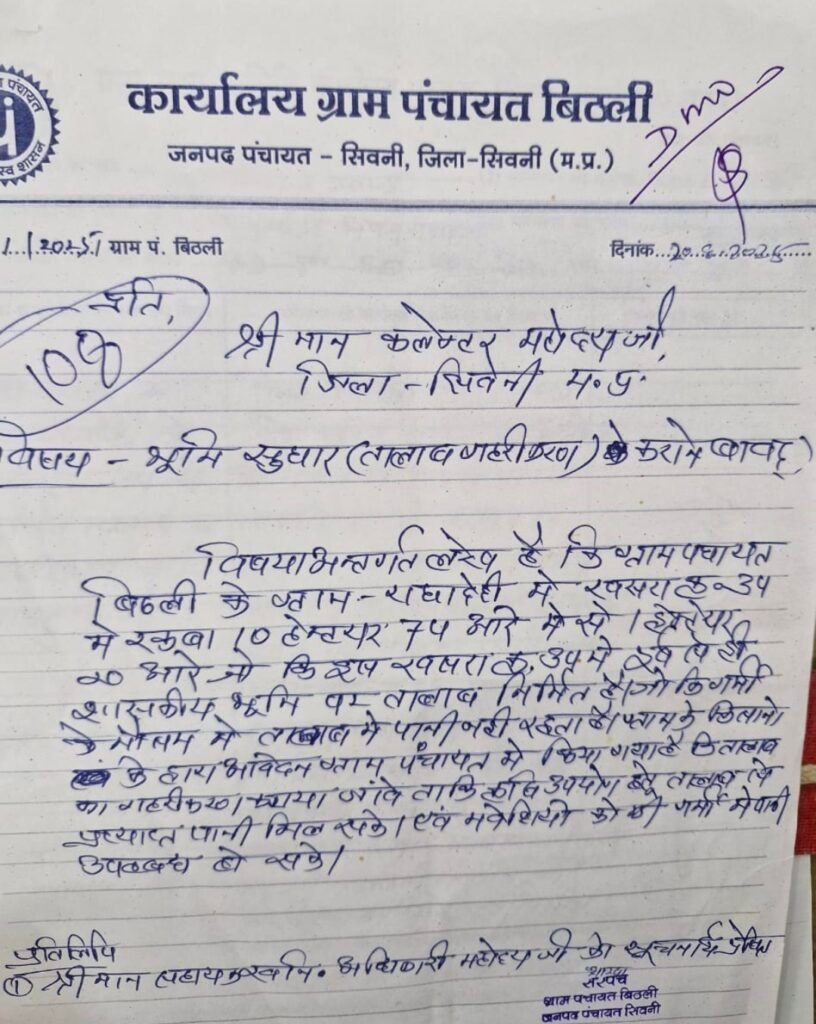 कार्यालय ग्राम पंचायत बिठली
जनपद पंचायत - सिवनी, जिला-सिवनी (म.प्र.)
ग्राम पं. बिठली
दिनांक
प्रति,
108
श्री मान कलेक्टर महोदय जी,
जिला - सिवनी म.प्र.
विषय - भूमि सुधार (तालाब गहरीकरण) के कराने बावद्
विषयान्तर्गत लेख है कि ग्राम पंचायत
बिठली के ग्राम - राघादेही में खसरा क्र. 34
में रकबा 10 हेक्टेयर 74 आरे में से 1 हेक्टेयर
20 आरे जो कि इस खसरा क्र. 34 में
शासकीय भूमि पर तालाब निर्मित है। जो कि गर्मी
के मौसम में तालाब में पानी नही रहता है। ग्राम के किसानो
के द्वारा आवेदन ग्राम पंचायत में किया गया है कि तालाब
का गहरीकरण कराया जावे ताकि कृषि उपयोग हेतु तालाब से
पानी मिल सके। एवं मवेशियो को भी गर्मी में पानी
उपलब्ध हो सके।
प्रतिलिपि
① श्री मान सहायक खनि. अधिकारी महोदय जी को सूचनार्थ प्रेषित
सरपंच
ग्राम पंचायत बिठली
जनपद पंचायत सिवनी